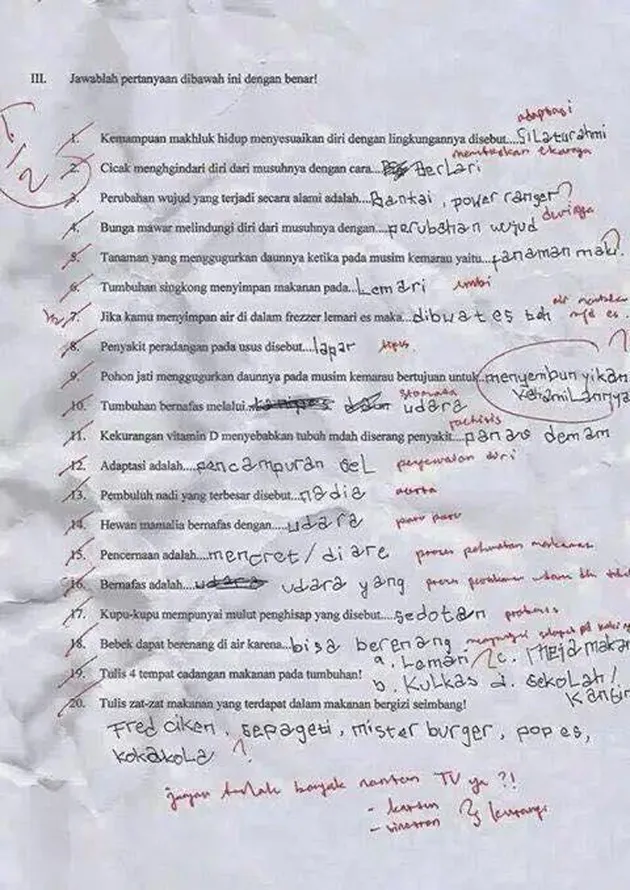 III. Jawablah pertanyaan dibawah ini dengan benar!
adaptasi
1. Kemampuan makhluk hidup menyesuaikan diri dengan lingkungannya disebut....Silaturahmi
2. Cicak menghgindari diri dari musuhnya dengan cara... Berlari
3. Perubahan wujud yang terjadi secara alami adalah....Bantai, power ranger?
durinya
4. Bunga mawar melindungi diri dari musuhnya dengan....perubahan wujud
5. Tanaman yang menggugurkan daunnya ketika pada musim kemarau yaitu...tanaman mati.
6. Tumbuhan singkong menyimpan makanan pada...Lemari umbi
7. Jika kamu menyimpan air di dalam frezzer lemari es maka...dibuat es teh
8. Penyakit peradangan pada usus disebut....lapar tipus.
9. Pohon jati menggugurkan daunnya pada musim kemarau bertujuan untuk..menyembunyikan
kehamilannya
stomata
10. Tumbuhan bernafas melalui... udara
11. Kekurangan vitamin D menyebabkan tubuh mdah diserang penyakit...panas demam
12. Adaptasi adalah....pencampuran sel penyesuaian diri
13. Pembuluh nadi yang terbesar disebut...nadia aorta
14. Hewan mamalia bernafas dengan.....udara paru paru
15. Pencernaan adalah....mencret/diare proses makanan
16. Bernafas adalah... udara yang proses
17. Kupu-kupu mempunyai mulut penghisap yang disebut....sedotan
18. Bebek dapat berenang di air karena...bisa berenang
19. Tulis 4 tempat cadangan makanan pada tumbuhan! a. Laman c. meja makan
b. Kulkas d. sekolah/
kantin
20. Tulis zat-zat makanan yang terdapat dalam makanan bergizi seimbang!
Fred ciken, sepageti, mister burger, pop es,
kokakola ?
jangan banyak nonton TV ya ?!
- kartun
- sinetron kurangi